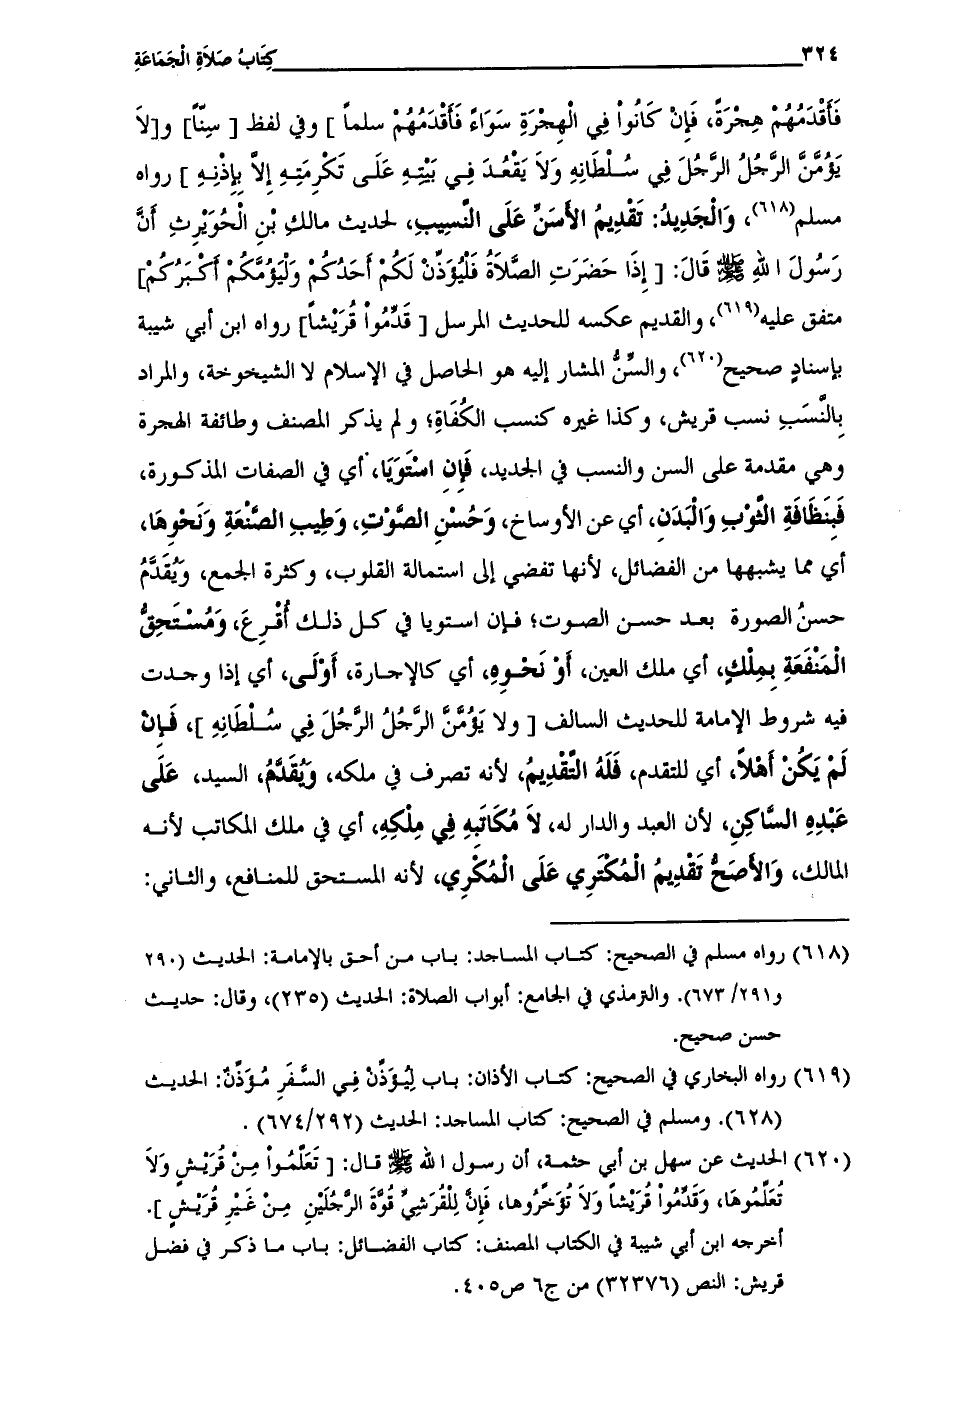 ٣٢٤ كِتَابُ صَلاَةِ الْجَمَاعَةِ
فَأَقْدَمُهُمْ هِجْرَةً، فَإِنْ كَانُواْ فِي الْهِجْرَةِ سَوَاءً فَأَقْدَمُهُمْ سلماً ] وفي لفظ [ سِنّاً] و[لاَ
يَؤُمَّنَّ الرَّجُلُ الرَّجُلَ فِي سُلْطَانِهِ وَلاَ يَقْعُدَ فِي بَيْتِهِ عَلَى تَكْرِمَتِهِ إِلاَّ بِإِذْنِهِ ] رواه
مسلم(٦١٨)، وَالْجَدِيدُ: تَقْدِيمُ الأَسَنِّ عَلَى النَّسِيبِ، لحديث مالكِ بْنِ الْحُوَيْرِثِ أَنَّ
رَسُولَ اللهِ ﷺ قَالَ: [ إِذَا حَضَرَتِ الصَّلاَةُ فَلْيُؤَذِّنْ لَكُمْ أَحَدُكُمْ وَلْيَؤُمَّكُمْ أَكْبَرُكُمْ]
متفق عليه(٦١٩)، والقديم عكسه للحديث المرسل [ قَدِّمُواْ قُرَيْشاً] رواه ابن أبي شيبة
بإسنادٍ صحيح(٦٢٠)، والسِّنُّ المشار إليه هو الحاصل في الإسلام لا الشيخوخة، والمراد
بِالنَّسَبِ نسب قريش، وكذا غيره كنسب الكُفَاةِ؛ ولم يذكر المصنف وطائفة الهجرة
وهي مقدمة على السن والنسب في الجديد، فَإِنِ اسْتَوَيَا، أي في الصفات المذكورة،
فَبِنَظَافَةِ الثَّوْبِ وَالْبَدَنِ، أي عن الأوساخ، وَحُسْنِ الصَّوْتِ، وَطِيبِ الصَّنْعَةِ وَنَحْوِهَا،
أي مما يشبهها من الفضائل، لأنها تفضي إلى استمالة القلوب، وكثرة الجمع، وَيُقَدَّمُ
حسنُ الصورة بعد حسن الصوت؛ فإن استويا في كل ذلك أُقْرِعَ، وَمُسْتَحِقُّ
الْمَنْفَعَةِ بِمِلْكٍ، أي ملك العين، أَوْ نَحْوِهِ، أي كالإجارة، أَوْلَى، أي إذا وجدت
فيه شروط الإمامة للحديث السالف [ ولا يَؤُمَّنَّ الرَّجُلُ الرَّجُلَ فِي سُلْطَانِهِ ]، فَإِنْ
لَمْ يَكُنْ أَهْلاً، أي للتقدم، فَلَهُ التَّقْدِيمُ، لأنه تصرف في ملكه، وَيُقَدَّمُ، السيد، عَلَى
عَبْدِهِ السَّاكِنِ، لأن العبد والدار له، لاَ مُكَاتَبِهِ فِي مِلْكِهِ، أي في ملك المكاتب لأنه
المالك، وَالأَصَحُّ تَقْدِيمُ الْمُكْتَرِي عَلَى الْمُكْرِي، لأنه المستحق للمنافع، والثاني:
(٦١٨) رواه مسلم في الصحيح: كتاب المساجد: باب من أحق بالإمامة: الحديث (٢٩٠
و٢٩١/ ٦٧٣). والترمذي في الجامع: أبواب الصلاة: الحديث (٢٣٥)، وقال: حديث
حسن صحيح.
(٦١٩) رواه البخاري في الصحيح: كتاب الأذان: باب لِيُؤَذِّنْ فِي السَّفَرِ مُؤَذِّنٌ: الحديث
(٦٢٨). ومسلم في الصحيح: كتاب المساجد: الحديث (٦٧٤/٢٩٢) .
(٦٢٠) الحديث عن سهل بن أبي حثمة، أن رسول الله ﷺ قال: [ تَعَلَّمُواْ مِنْ قُرَيْشٍ وَلاَ
تُعَلِّمُوهَا، وَقَدِّمُواْ قُرَيْشاً وَلاَ تُؤَخِّرُوها، فَإِنَّ لِلْقُرَشِيِّ قُوَّةَ الرَّجُلَيْنِ مِنْ غَيْرِ قُرَيْشٍ ].
أخرجه ابن أبي شيبة في الكتاب المصنف: كتاب الفضائل: باب ما ذكر في فضل
قريش: النص (٣٢٣٧٦) من ج٦ ص٤٠٥.